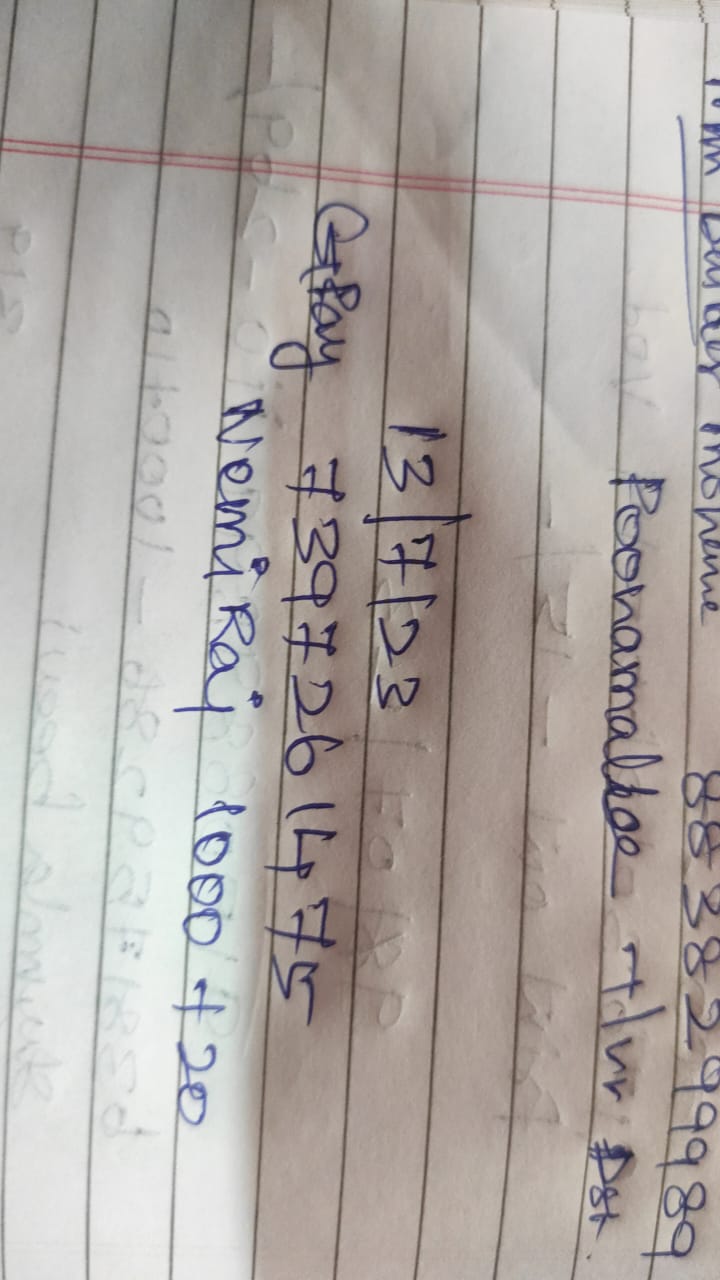 8838299989
Poonamallee T/vr Dst.
13/7/23
GPay 7397261475
Nemi Raj 1000 + 20